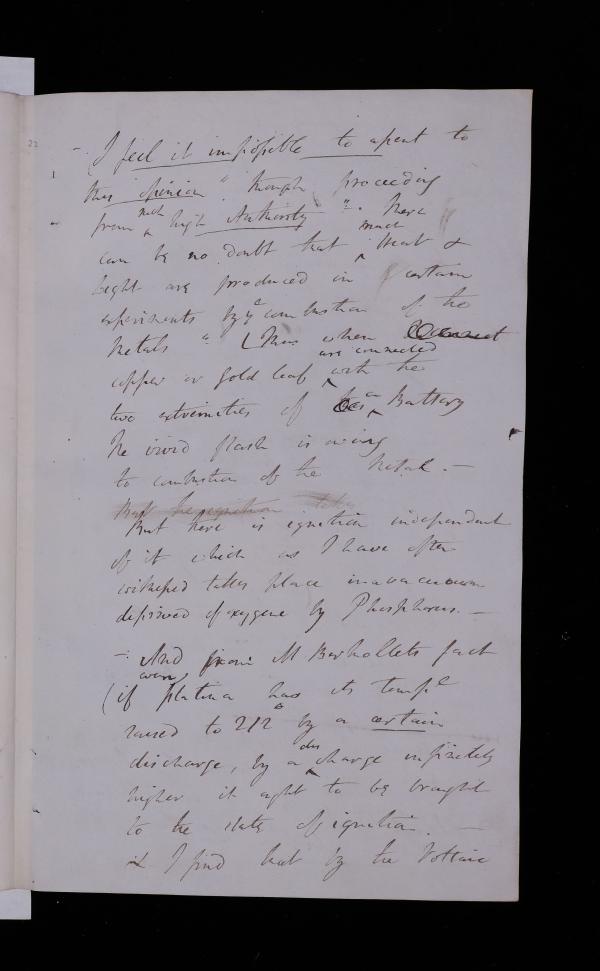 22
– (I feel it impossible to assent to
this opinion" though proceeding
from such high Authority ". There
can be no doubt that much Heat &
Light are produced in certain
experiments by ye combustion of the
Metals " (Thus when connect
copper or gold leaf are connected with the
two extremities of a Battery
the vivid flash is owing
to combustion of the Metal. –
But the ignition
But there is ignition independent
of it which as I have often
witnessed takes place in a vacuum
deprived of oxygene by Phosphorus. –
– And from M Berthollets fact
(if even platina has its tempe
raised to 212° by a certain
discharge, by a discharge infinitely
higher it ought to be brought
to the state of ignition. –
& I find that by the Voltaic